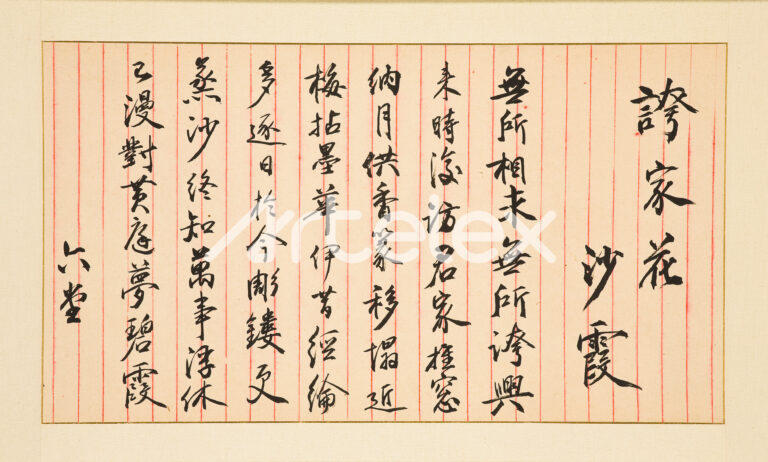 誇家花
沙霞
無所相求無所誇興
來時復訪君家推窗
納月供香篆移榻近
梅拈墨華伊昔經綸
多逐日於今彫鏤更
蒸沙終知萬事浮休
已漫對黃庭夢碧霞
六堂